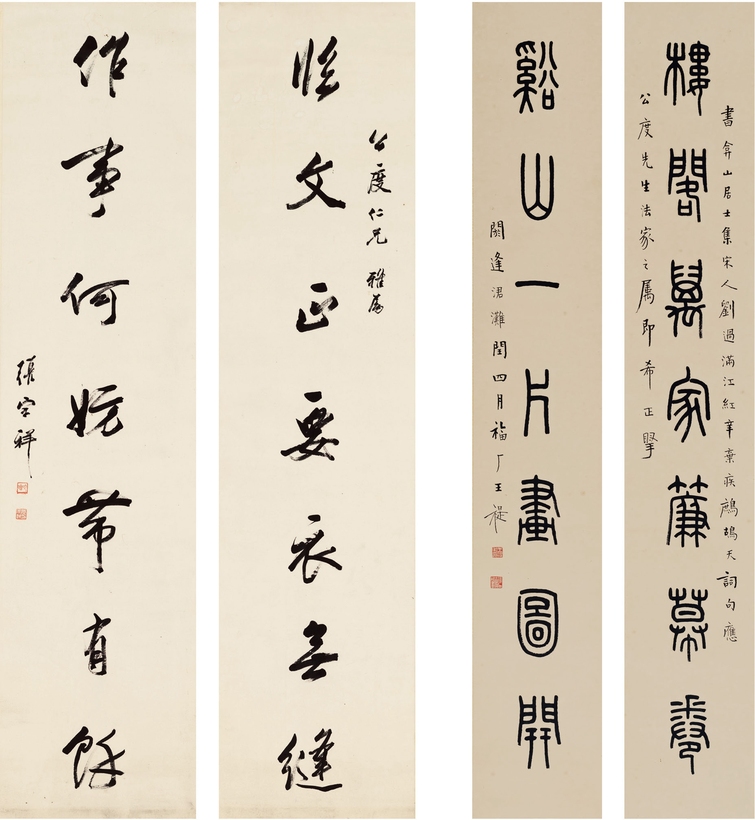 書弇山居士集宋人劉過滿江紅辛棄疾鷓鴣天詞句應
樓閣萬家簾幕卷
公度先生法家之属即希正
谿山一片畫圖開
閼逢涒灘閏四月福厂王禔
公度仁兄雅属
臨文正要衣無縫
作事何妨帶有餘
張宗祥